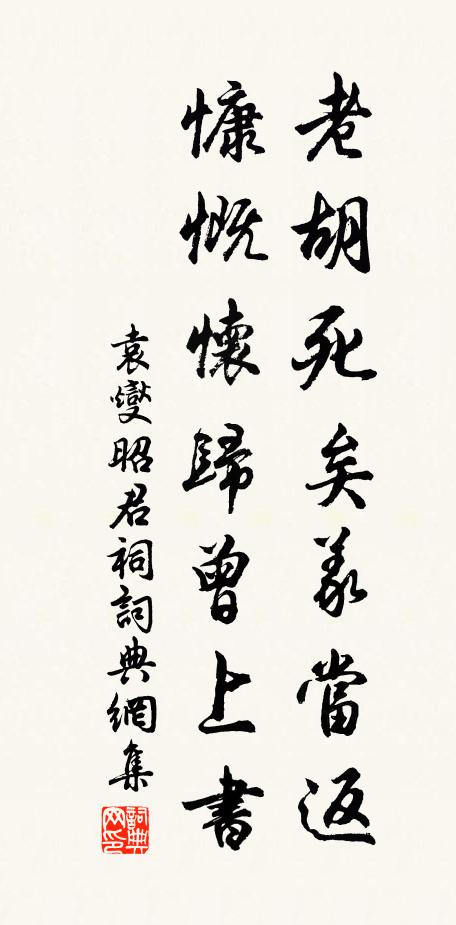 老胡死矣義當返
慷慨懷歸曾上書
袁燮昭君祠詞典網集
詞典网印